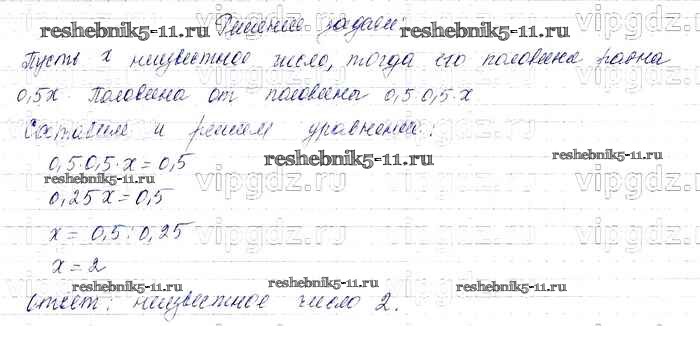 reshebnik5-11.ru Решение задачи: reshebnik5-11.ru vipgdz.ru
Пусть x неизвестное число, тогда его половина равна
0,5x. Половина от половины 0,5·0,5·x
vipgdz.ru vipgdz.ru vipgdz.ru
Составим и решим уравнение:
0,5·0,5·x=0,5 reshebnik5-11.ru reshebnik5-11.ru
reshebnik5-11.ru vipgdz.ru vipgdz.ru vipgdz.ru
0,25x=0,5
x= 0,5:0,25 vipgdz.ru vipgdz.ru vipgdz.ru
x=2
reshebnik5-11.ru reshebnik5-11.ru reshebnik5-11.ru
Ответ: неизвестное число 2.
vipgdz.ru vipgdz.ru vipgdz.ru